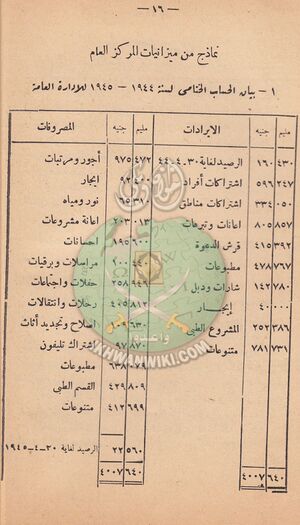 — ١٦ —
نماذج من ميزانيات المركز العام
١ - بيان الحساب الختامى لسنة ١٩٤٤ - ١٩٤٥ للادارة العامة
مليم جنيه الايرادات مليم جنيه المصروفات
٤٣٠ ١٦٠ الرصيد لغاية ٣٠-٤-٤٤ ٤٧٢ ٩٧٥ أجور ومرتبات
٢٤٧ ٥٩٦ اشتراكات أفراد ايجار
٠٥٠ ٣٣٤ اشتراكات مناطق نور ومياه
٨٥٧ ٨٠٥ اعانات وتبرعات ٠١٣ ٢٠٣ اعانة مشروعات
٣٩٢ ٤١٥ قرش الدعوة ٦٠٠ ١٩٥ احسانات
٧٦٧ ٤٧٨ مطبوعات مراسلات وبرقيات
٧٨٠ ١٤٢ شارات ودبل ٩٤٩ ٢٥٨ حفلات واجتماعات
٠٠٠ ٤٠ إيجار ٨١٢ ٤٠٥ رحلات وانتقالات
٣٨٦ ٢٥٢ المشروع الطبى ٦٣٠ اصلاح وتجديد أثاث
٧٣١ ٧٨١ متنوعات اشتراك تليفون
مطبوعات
٨٠٩ ٤٢٩ القسم الطبى
٦٩٩ ٤١٢ متنوعات
٥٦٠ ٢٢ الرصيد لغاية ٣٠-٤-١٩٤٥
٦٤٠ ٤٠٠٧ ٦٤٠ ٤٠٠٧
IKHWANWIKI.COM